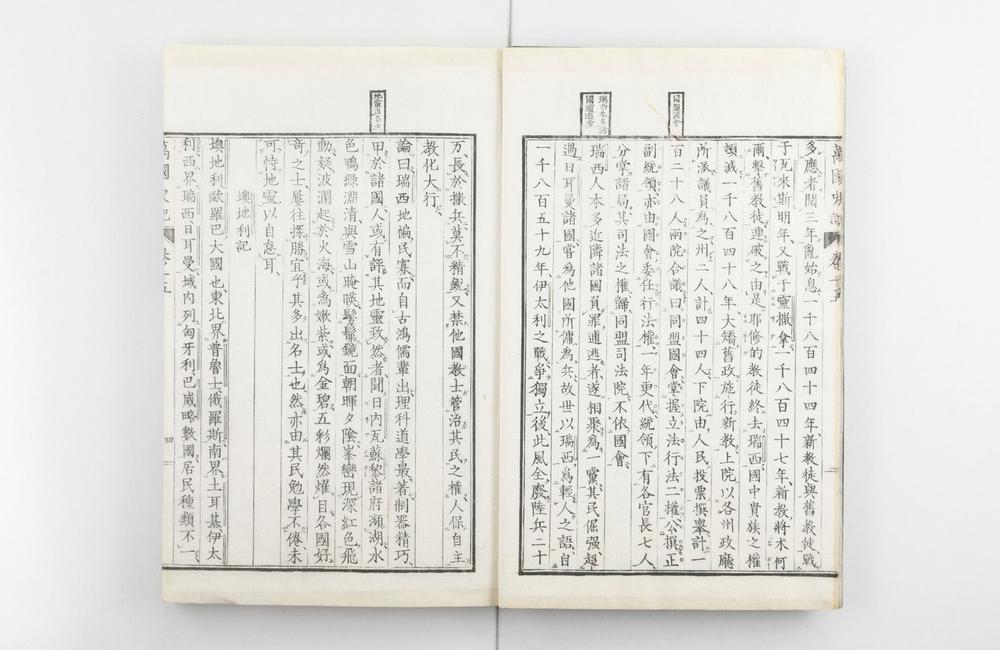 多應者閱三年亂始息一千八百四十四年新教徒與舊教徒戰
于瓦來斯明年又戰于靈撒拿一千八百四十七年新教將木何
爾擊舊教徒連破之由是耶修的教徒終去瑞西國中貴族之權
頓減一千八百四十八年大矯舊政施行新教上院以各州政廳
所派議員為之州二人計四十四人下院由人民投票撰舉計一
百二十八人兩院合議曰同盟國會掌握立法行法二權公撰正
副統領亦由國會委任行法權一年更代統領下有各官長七人
分掌諸局其司法之權歸同盟司法院不依國會
瑞西人本多近隣諸國負罪逋逃者遂相聚為一黨其民倔强超
過日耳曼諸國嘗為他國所傭為兵故世以瑞西為輕人之語自
一千八百五十九年伊太利之戰爭獨立後此風全廢陸兵二十
瑞西本多諸
國逋逃者
万長於撒兵莫不精銳又禁他國教士管治其民之權人保自主
教化大行
論曰瑞西地褊民寡而自古鴻儒輩出理科道學最著制器精巧
甲於諸國人或有評其地靈致然者聞日內瓦蘇黎諸府瀕湖水
色鴨綠淵清與雪山晻暎鬟鬟鏡面朝暉夕陰峯巒現深紅色飛
動疑波瀾起於火海或為嫩紫或為金碧五彩爛然燿目各國好
奇之士屢往探勝宜乎其多出名士也然亦由其民勉學不倦未
可恃地靈以自怠耳
墺地利記
墺地利歐羅巴大國也東北界普魯士俄羅斯南界土耳基伊太
利西界瑞西日耳曼域內列匈牙利巴威略數國居民種類不一
萬國史記
卷十五
四